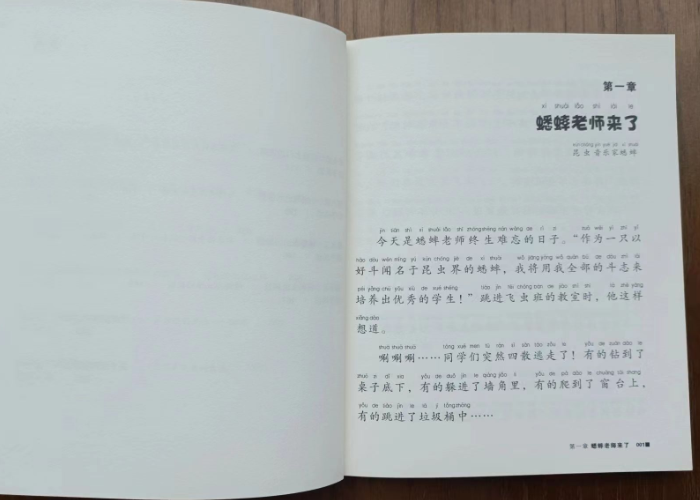 第一章
xī shuài lǎo shī lái le
蟋蟀老师来了
kūn chóng yīn yuè jiā xī shuài
昆虫音乐家蟋蟀
jīn tiān shì xī shuài lǎo shī zhōng shēng nán wàng de rì zi zuò wéi yì zhī yǐ
今天是蟋蟀老师终生难忘的日子。“作为一只以
hào dòu wén míng yú kūn chóng jiè de xī shuài wǒ jiāng yòng wǒ quán bù de dòu zhì lái
好斗闻名于昆虫界的蟋蟀，我将用我全部的斗志来
péi yǎng chū yōu xiù de xué shēng tiào jìn fēi chóng bān de jiào shì shí tā zhè yàng
培养出优秀的学生！”跳进飞虫班的教室时，他这样
xiǎng dào
想道。
shuā shuā shuā tóng xué men tū rán sì sàn táo zǒu le yǒu de zuān dào le
唰唰唰……同学们突然四散逃走了！有的钻到了
zhuō zi dǐ xià yǒu de duǒ jìn le qiáng jiǎo lǐ yǒu de pá dào le chuāng tái shàng
桌子底下，有的躲进了墙角里，有的爬到了窗台上，
yǒu de tiào jìn le lā jī tǒng zhōng
有的跳进了垃圾桶中……
第一章 蟋蟀老师来了 001